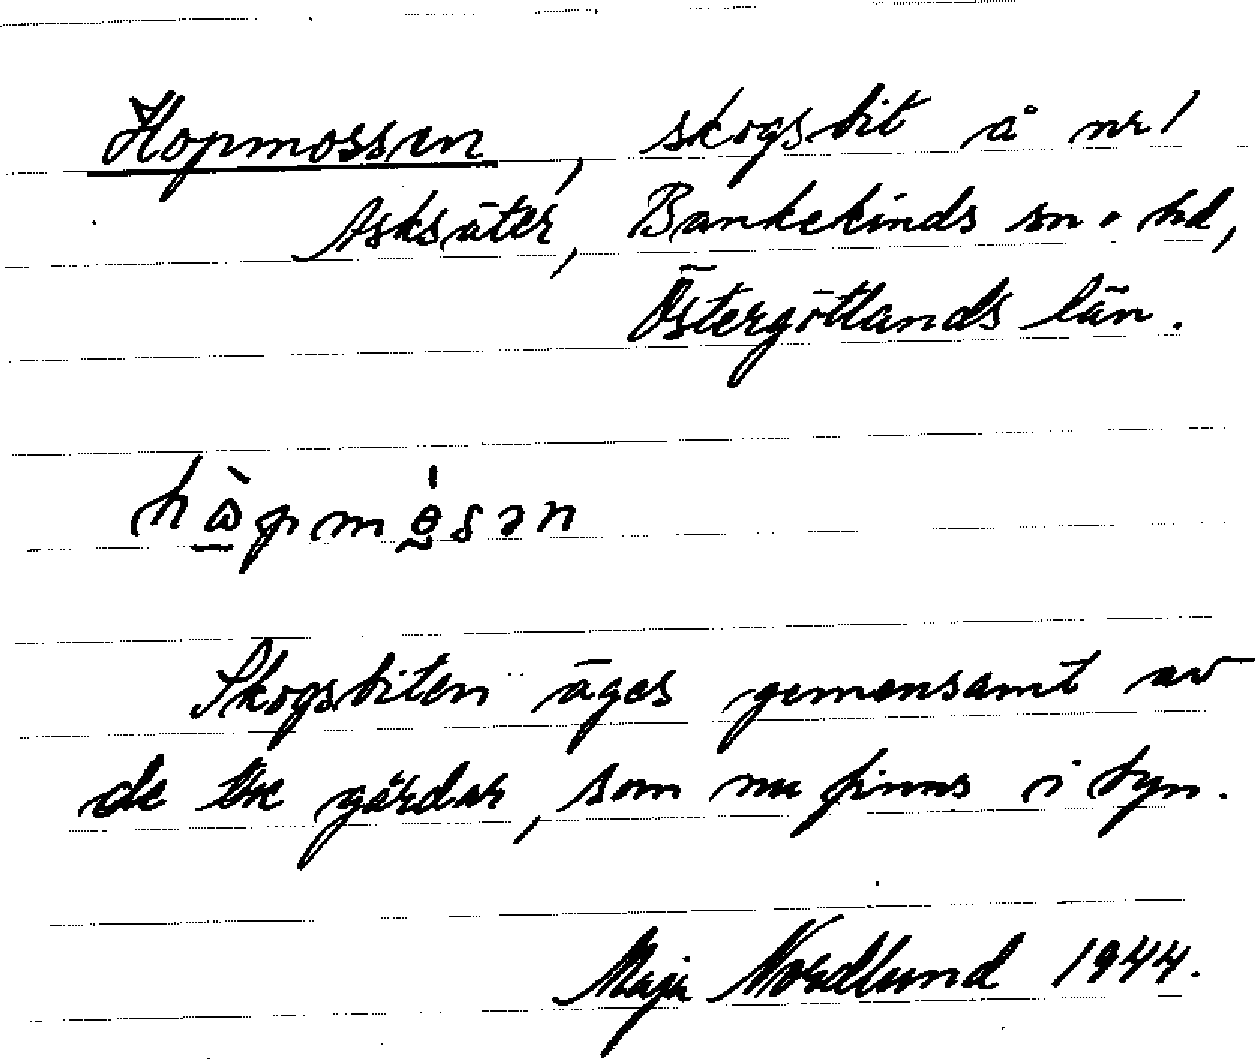 Hopmossen, skogsbit å nr 1
Asksäter, Bankekinds sn o. hd,
Östergötlands län.
Skogsbiten äges gemensamt av
de tre gårdar, som nu finns i byn.
Maja Nordlund 1944.